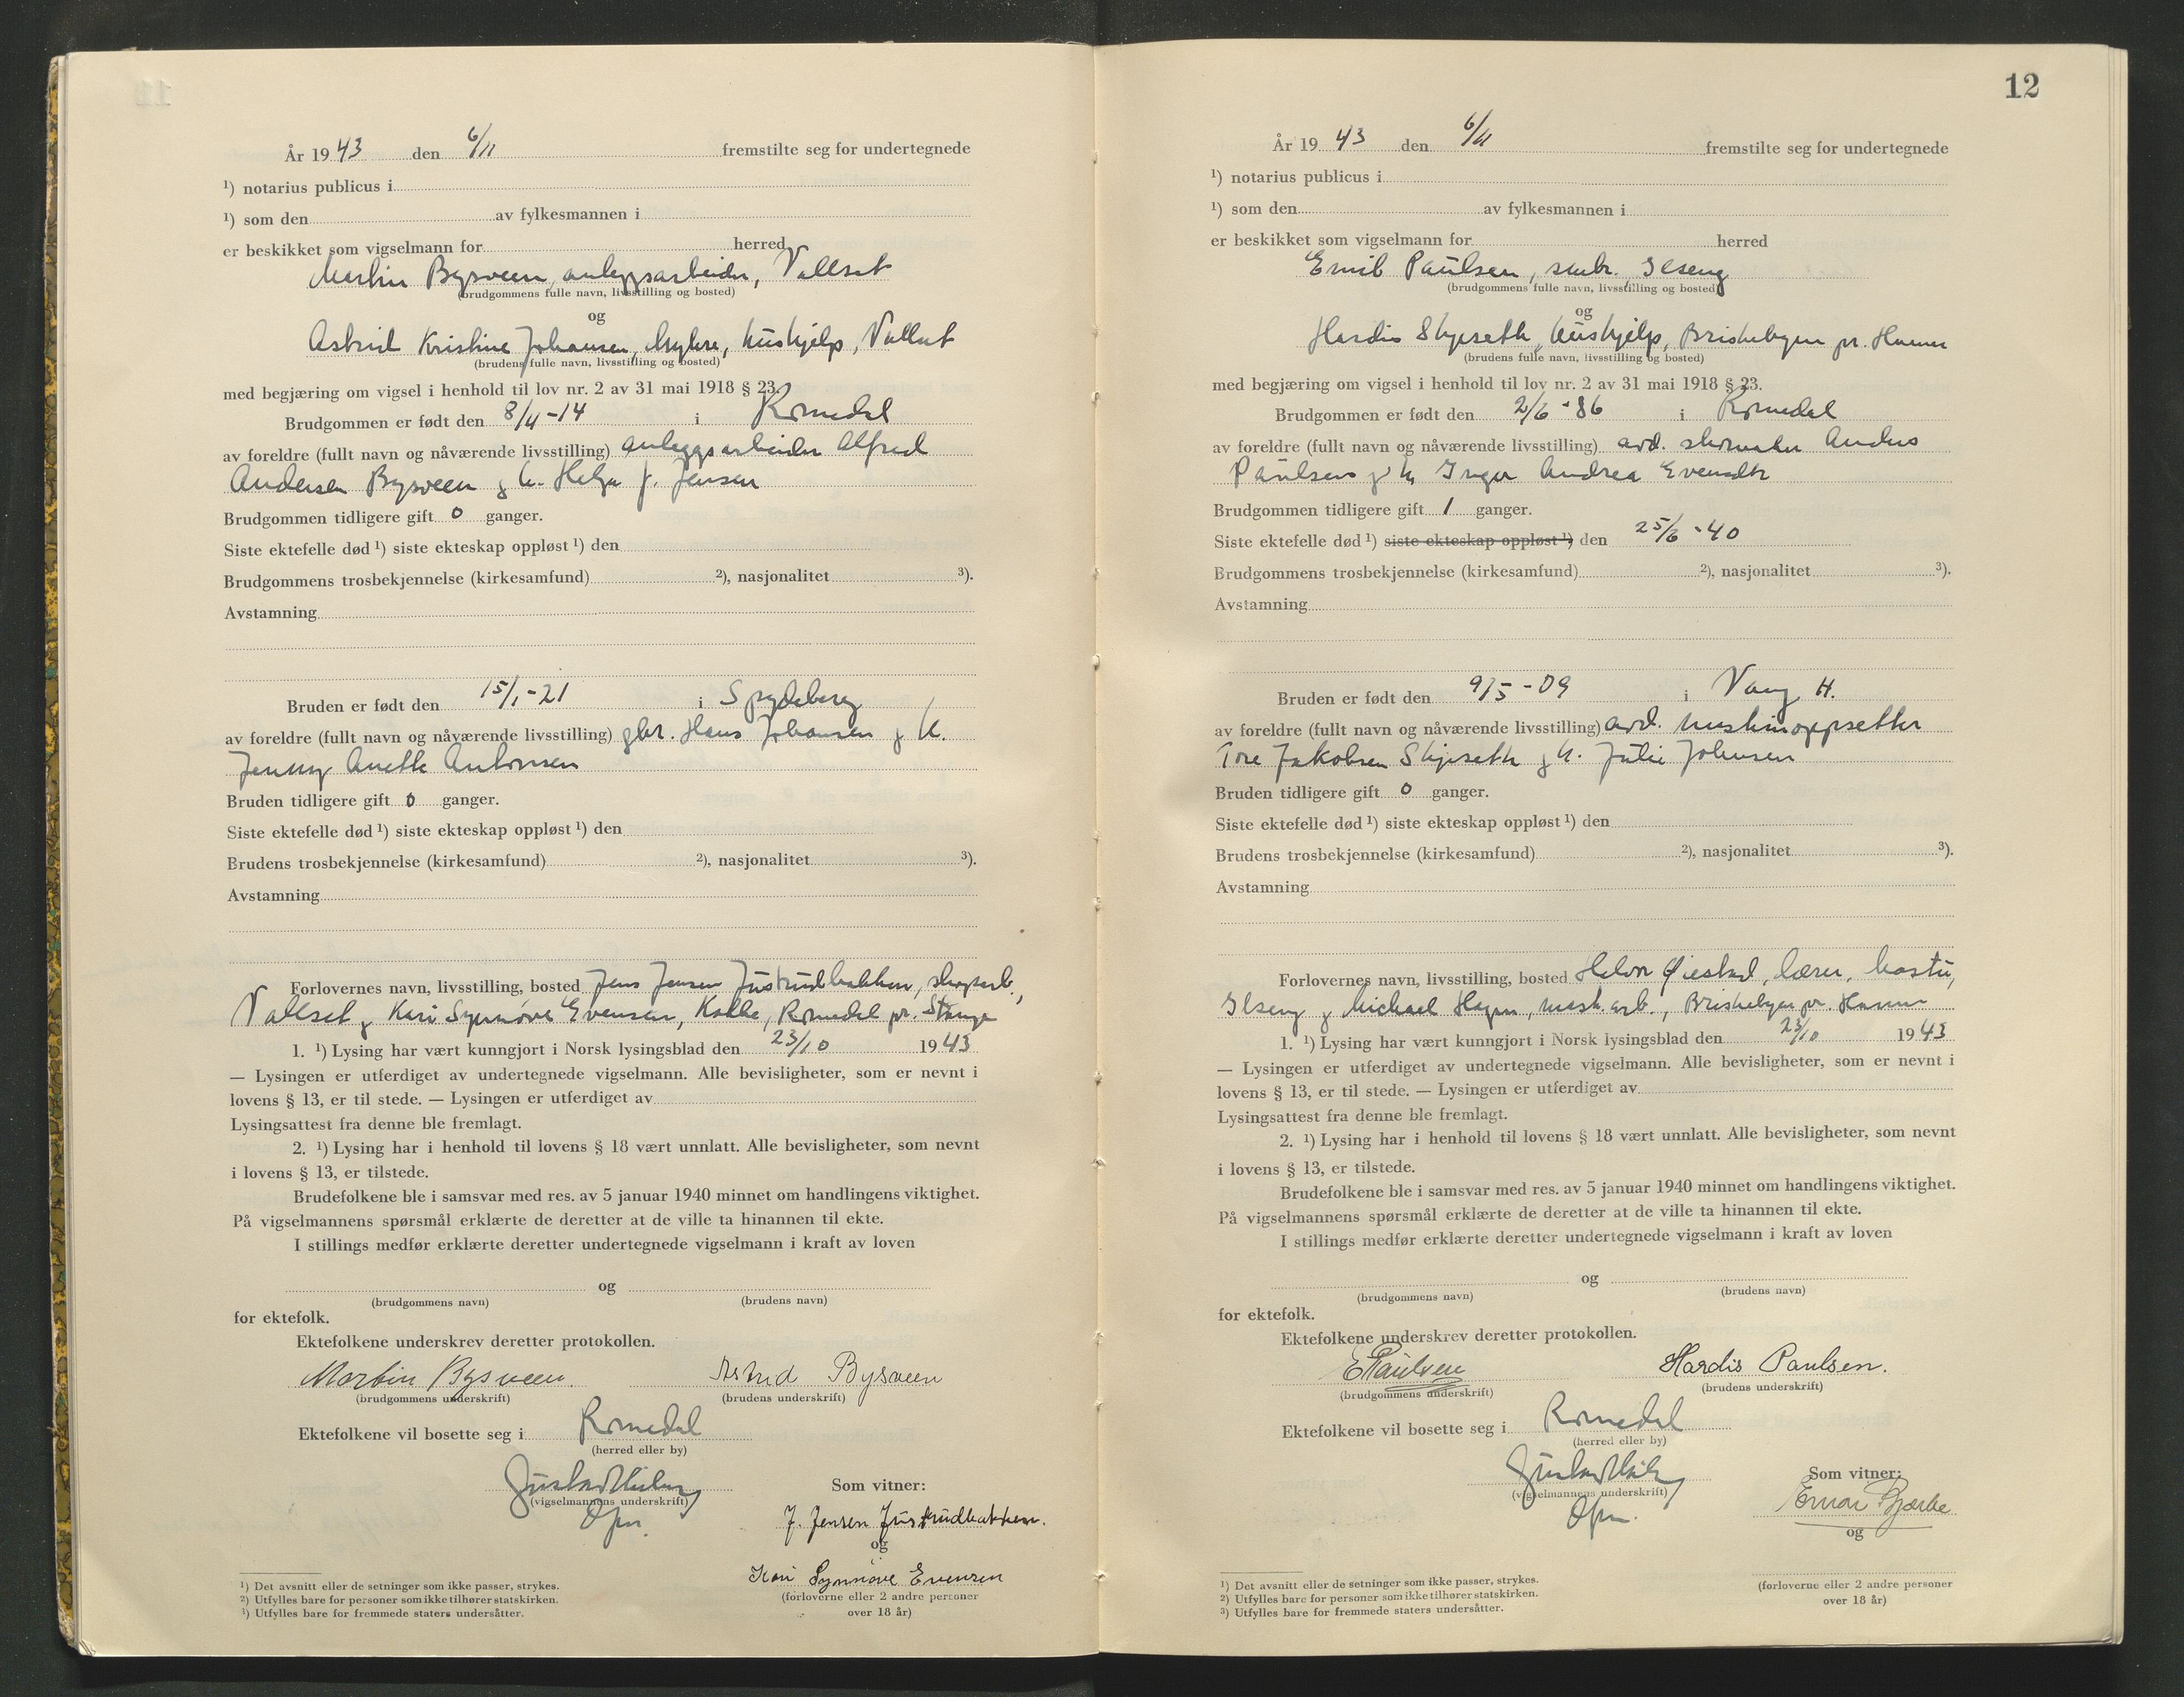 År 19 43 den 6/11 fremstilte seg for undertegnede
¹) notarius publicus i
¹) som den av fylkesmannen i
er beskikket som vigselmann for herred
Martin Bysveen, anleggsarbeider, Vallset
(brudgommens fulle navn, livsstilling og bosted)
og
Astrid Kristine Johansen, hushjelp, Vallset
(brudens fulle navn, livsstilling og bosted)
med begjæring om vigsel i henhold til lov nr. 2 av 31 mai 1918 § 23.
Brudgommen er født den 8/11-14 i Romedal
av foreldre (fullt navn og nåværende livsstilling) anleggsarbeider Alfred
Andersen Bysveen g h. Helga f. Jensen
Brudgommen tidligere gift 0 ganger.
Siste ektefelle død ¹) siste ekteskap oppløst ¹) den
Brudgommens trosbekjennelse (kirkesamfund) ²), nasjonalitet ³).
Avstamning
Bruden er født den 15/1-21 i Spydeberg
av foreldre (fullt navn og nåværende livsstilling) gbr. Hans Johansen g h.
Jenny Anette Antonsen
Bruden tidligere gift 0 ganger.
Siste ektefelle død ¹) siste ekteskap oppløst ¹) den
Brudens trosbekjennelse (kirkesamfund) ²), nasjonalitet ³).
Avstamning
Forlovernes navn, livsstilling, bosted Jens Jensen Justrudbakken, skogsarb.,
Vallset g Kari Synnøve Evensen, Kolbe, Romedal pr. Stange
1. ¹) Lysing har vært kunngjort i Norsk lysingsblad den 23/10 19 43
— Lysingen er utferdiget av undertegnede vigselmann. Alle bevisligheter, som er nevnt i
lovens § 13, er til stede. — Lysingen er utferdiget av
Lysingsattest fra denne ble fremlagt.
2. ¹) Lysing har i henhold til lovens § 18 vært unnlatt. Alle bevisligheter, som nevnt
i lovens § 13, er tilstede.
Brudefolkene ble i samsvar med res. av 5 januar 1940 minnet om handlingens viktighet.
På vigselmannens spørsmål erklærte de deretter at de ville ta hinannen til ekte.
I stillings medfør erklærte deretter undertegnede vigselmann i kraft av loven
og
(brudgommens navn) (brudens navn)
for ektefolk.
Ektefolkene underskrev deretter protokollen.
Martin Bysveen. Astrid Bysveen
(brudgommens underskrift) (brudens underskrift)
Ektefolkene vil bosette seg i Romedal
(herred eller by)
Som vitner:
(vigselmannens underskrift)
J. Jensen Justrudbakken.
og
Kari Synnøve Evensen
(forloverne eller 2 andre personer
over 18 år)
¹) Det avsnitt eller de setninger som ikke passer, strykes.
²) Utfylles bare for personer som ikke tilhører statskirken.
³) Utfylles bare for fremmede staters undersåtter.
12
År 19 43 den 6/11 fremstilte seg for undertegnede
¹) notarius publicus i
¹) som den av fylkesmannen i
er beskikket som vigselmann for herred
Emil Paulsen, smbr. Ilseng
(brudgommens fulle navn, livsstilling og bosted)
og
Hardis Skjeseth, hushjelp, Briskebyen pr. Hamar
(brudens fulle navn, livsstilling og bosted)
med begjæring om vigsel i henhold til lov nr. 2 av 31 mai 1918 § 23.
Brudgommen er født den 2/6-86 i Romedal
av foreldre (fullt navn og nåværende livsstilling) avd. skomaker Anders
Paulsen g h Inger Andrea Evensdtr
Brudgommen tidligere gift 1 ganger.
Siste ektefelle død ¹) siste ekteskap oppløst ¹) den 25/6-40
Brudgommens trosbekjennelse (kirkesamfund) ²), nasjonalitet ³).
Avstamning
Bruden er født den 9/5-09 i Vang H.
av foreldre (fullt navn og nåværende livsstilling) avd. maskinoppsetter
Tore Jakobsen Skjeseth g h. Julie Johnsen
Bruden tidligere gift 0 ganger.
Siste ektefelle død ¹) siste ekteskap oppløst ¹) den
Brudens trosbekjennelse (kirkesamfund) ²), nasjonalitet ³).
Avstamning
Forlovernes navn, livsstilling, bosted Halvor Øiestad, lærer,
Ilseng g Michael Hagen, mask.arb., Briskebyen pr. Hamar
1. ¹) Lysing har vært kunngjort i Norsk lysingsblad den 23/10 19 43
— Lysingen er utferdiget av undertegnede vigselmann. Alle bevisligheter, som er nevnt i
lovens § 13, er til stede. — Lysingen er utferdiget av
Lysingsattest fra denne ble fremlagt.
2. ¹) Lysing har i henhold til lovens § 18 vært unnlatt. Alle bevisligheter, som nevnt
i lovens § 13, er tilstede.
Brudefolkene ble i samsvar med res. av 5 januar 1940 minnet om handlingens viktighet.
På vigselmannens spørsmål erklærte de deretter at de ville ta hinannen til ekte.
I stillings medfør erklærte deretter undertegnede vigselmann i kraft av loven
og
(brudgommens navn) (brudens navn)
for ektefolk.
Ektefolkene underskrev deretter protokollen.
E Paulsen Hardis Paulsen.
(brudgommens underskrift) (brudens underskrift)
Ektefolkene vil bosette seg i Romedal
(herred eller by)
Som vitner:
(vigselmannens underskrift)
og
(forloverne eller 2 andre personer
over 18 år)
¹) Det avsnitt eller de setninger som ikke passer, strykes.
²) Utfylles bare for personer som ikke tilhører statskirken.
³) Utfylles bare for fremmede staters undersåtter.